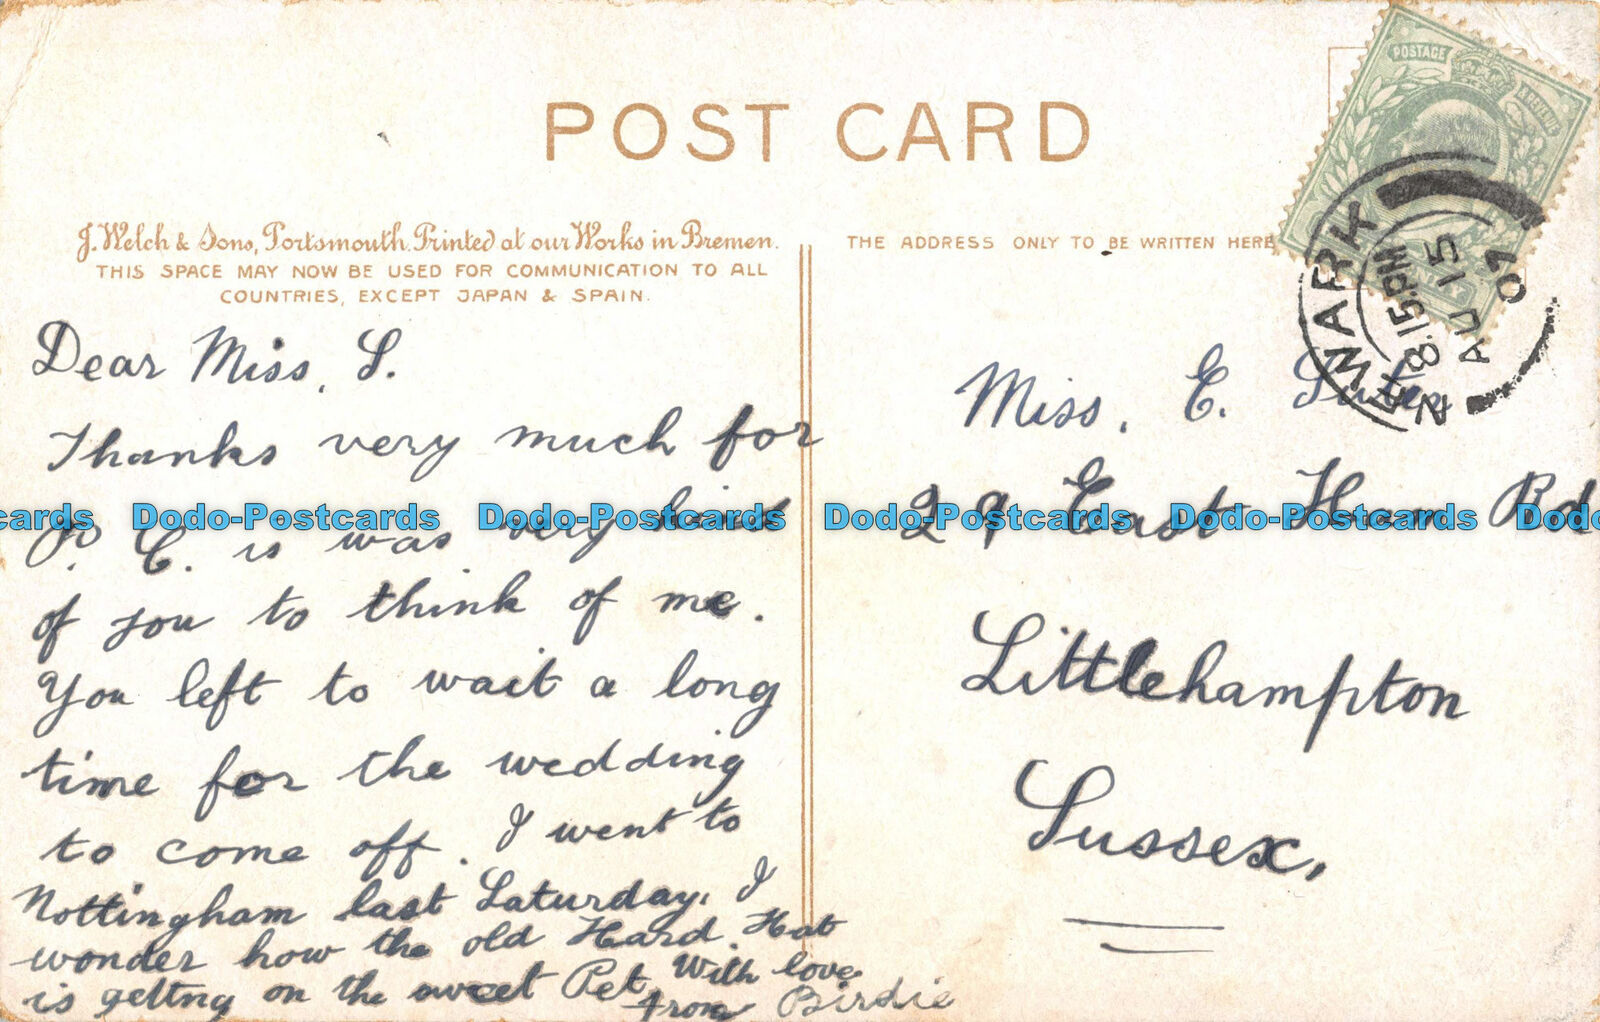 POST CARD
J. Welch & Sons, Portsmouth. Printed at our Works in Bremen.
THIS SPACE MAY NOW BE USED FOR COMMUNICATION TO ALL
COUNTRIES, EXCEPT JAPAN & SPAIN.
THE ADDRESS ONLY TO BE WRITTEN HERE
POSTAGE
REVENUE
NEWARK
8.15PM
AU 15
07
Dear Miss. S.
Thanks very much for
P. C. is was very kind
of you to think of me.
You left to wait a long
time for the wedding
to come off. I went to
Nottingham last Saturday. I
wonder how the old Hard. Hat
is getting on the sweet Pet. With love
from Birdie
Miss. E.
29 East Rd
Littlehampton
Sussex,
Dodo-Postcards Dodo-Postcards Dodo-Postcards Dodo-Postcards